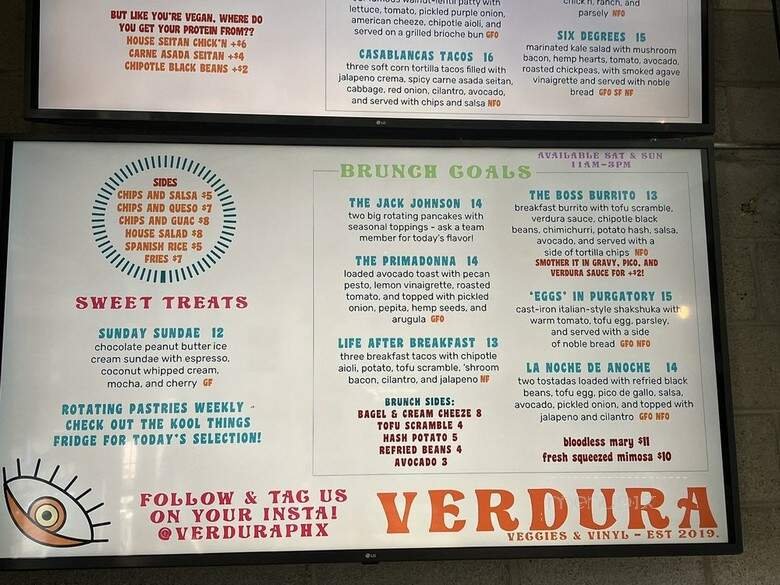 BUT LIKE YOU'RE VEGAN, WHERE DO
YOU GET YOUR PROTEIN FROM??
HOUSE SEITAN CHICK'N +$6
CARNE ASADA SEITAN +$4
CHIPOTLE BLACK BEANS +$2
lettuce, tomato, pickled purple onion,
american cheeze, chipotle aioli, and
served on a grilled brioche bun GFO
CASABLANCAS TACOS 16
three soft corn tortilla tacos filled with
jalapeno crema, spicy carne asada seitan,
cabbage, red onion, cilantro, avocado,
and served with chips and salsa NFO
chick'n, ranch, and
parsely NFO
SIX DEGREES 15
marinated kale salad with mushroom
bacon, hemp hearts, tomato, avocado,
roasted chickpeas, with smoked agave
vinaigrette and served with noble
bread GFO SF NF
LG
SIDES
CHIPS AND SALSA $5
CHIPS AND QUESO $7
CHIPS AND GUAC $8
HOUSE SALAD $8
SPANISH RICE $5
FRIES $7
SWEET TREATS
SUNDAY SUNDAE 12
chocolate peanut butter ice
cream sundae with espresso,
coconut whipped cream,
mocha, and cherry GF
ROTATING PASTRIES WEEKLY -
CHECK OUT THE KOOL THINGS
FRIDGE FOR TODAY'S SELECTION!
BRUNCH GOALS
AVAILABLE SAT & SUN
11AM-3PM
THE JACK JOHNSON 14
two big rotating pancakes with
seasonal toppings - ask a team
member for today's flavor!
THE PRIMADONNA 14
loaded avocado toast with pecan
pesto, lemon vinaigrette, roasted
tomato, and topped with pickled
onion, pepita, hemp seeds, and
arugula GFO
LIFE AFTER BREAKFAST 13
three breakfast tacos with chipotle
aioli, potato, tofu scramble, 'shroom
bacon, cilantro, and jalapeno NF
BRUNCH SIDES:
BAGEL & CREAM CHEEZE 8
TOFU SCRAMBLE 4
HASH POTATO 5
REFRIED BEANS 4
AVOCADO 3
THE BOSS BURRITO 13
breakfast burrito with tofu scramble,
verdura sauce, chipotle black
beans, chimichurri, potato hash, salsa,
avocado, and served with a
side of tortilla chips NFO
SMOTHER IT IN GRAVY, PICO, AND
VERDURA SAUCE FOR +$2!
'EGGS' IN PURGATORY 15
cast-iron italian-style shakshuka with
warm tomato, tofu egg, parsley,
and served with a side
of noble bread GFO NFO
LA NOCHE DE ANOCHE 14
two tostadas loaded with refried black
beans, tofu egg, pico de gallo, salsa,
avocado, pickled onion, and topped with
jalapeno and cilantro GFO NFO
bloodless mary $11
fresh squeezed mimosa $10
FOLLOW & TAG US
ON YOUR INSTA!
@VERDURAPHX
VERDURA
VEGGIES & VINYL - EST 2019.
LG